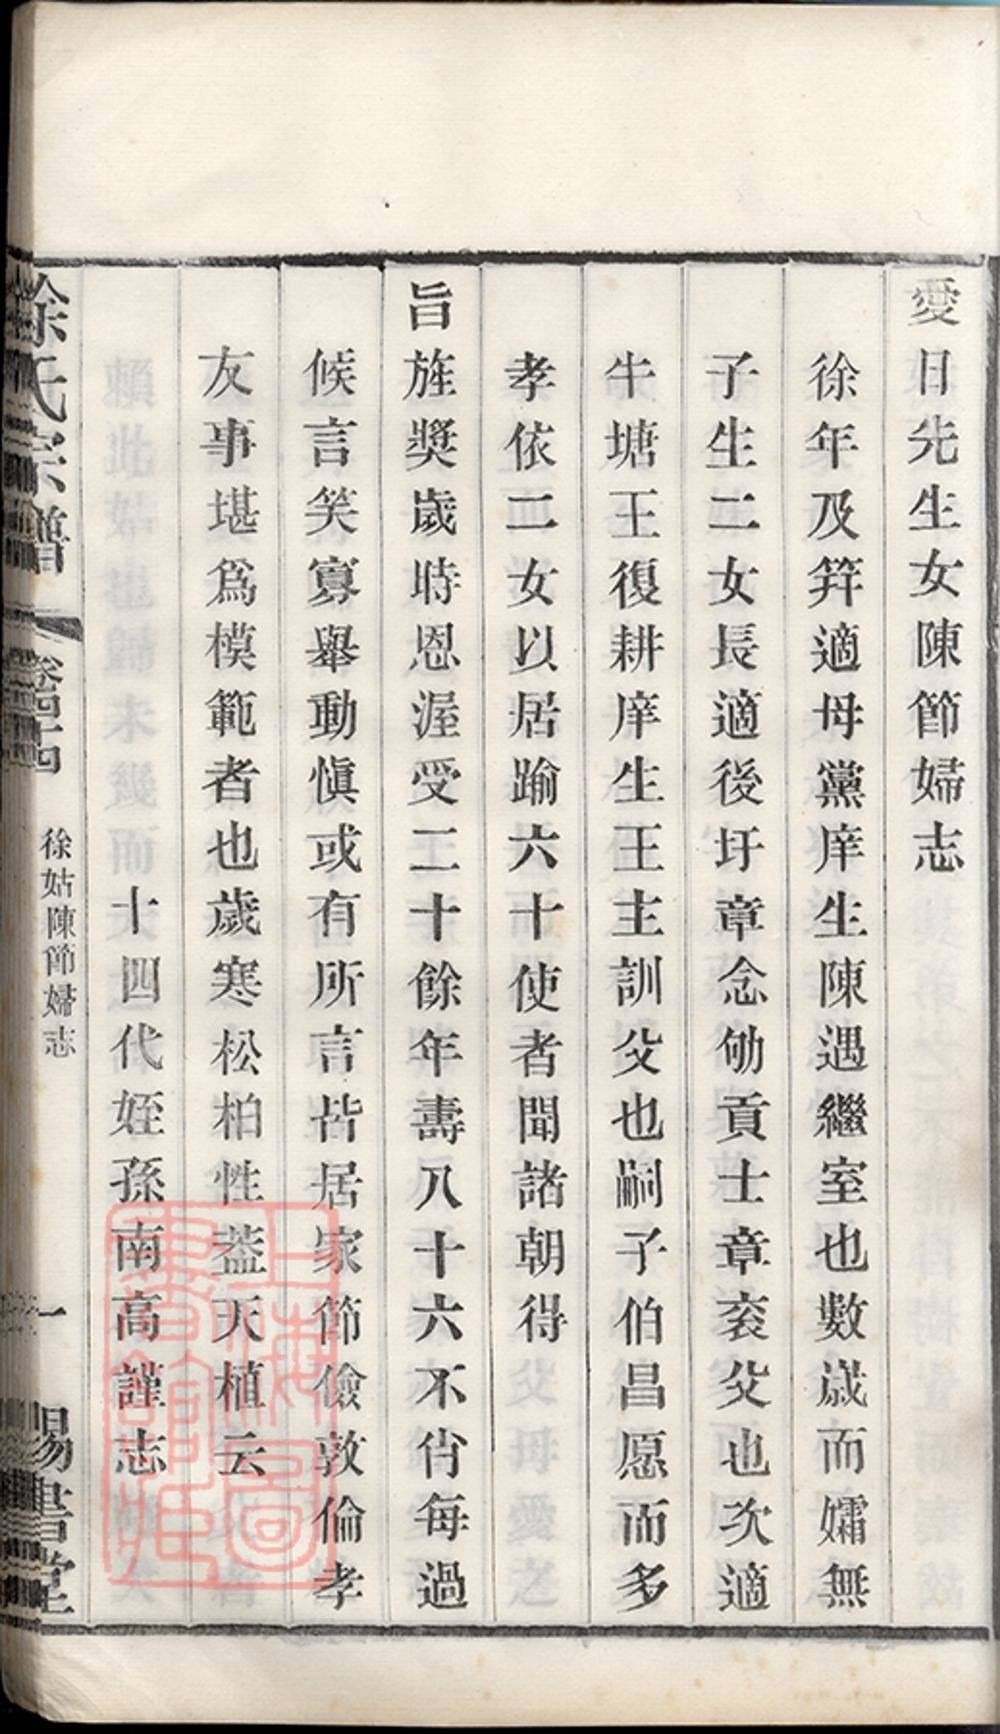 愛日先生女陳節婦志
徐年及笄適母黨庠生陳遇繼室也數歲而孀無
子生二女長適後圩章念劬貢士章衮父也次適
牛塘王復耕庠生王主訓父也嗣子伯昌愿而多
孝依二女以居踰六十使者聞諸朝得
旨旌獎歲時恩渥受二十餘年壽八十六不肖每過
候言笑寡舉動愼或有所言皆居家節儉敦倫孝
友事堪爲模範者也歲寒松柏性葢天植云
十四代姪孫南高謹志
徐氏宗譜
卷四十四
徐姑陳節婦志
一
賜書堂
上海圖書館藏